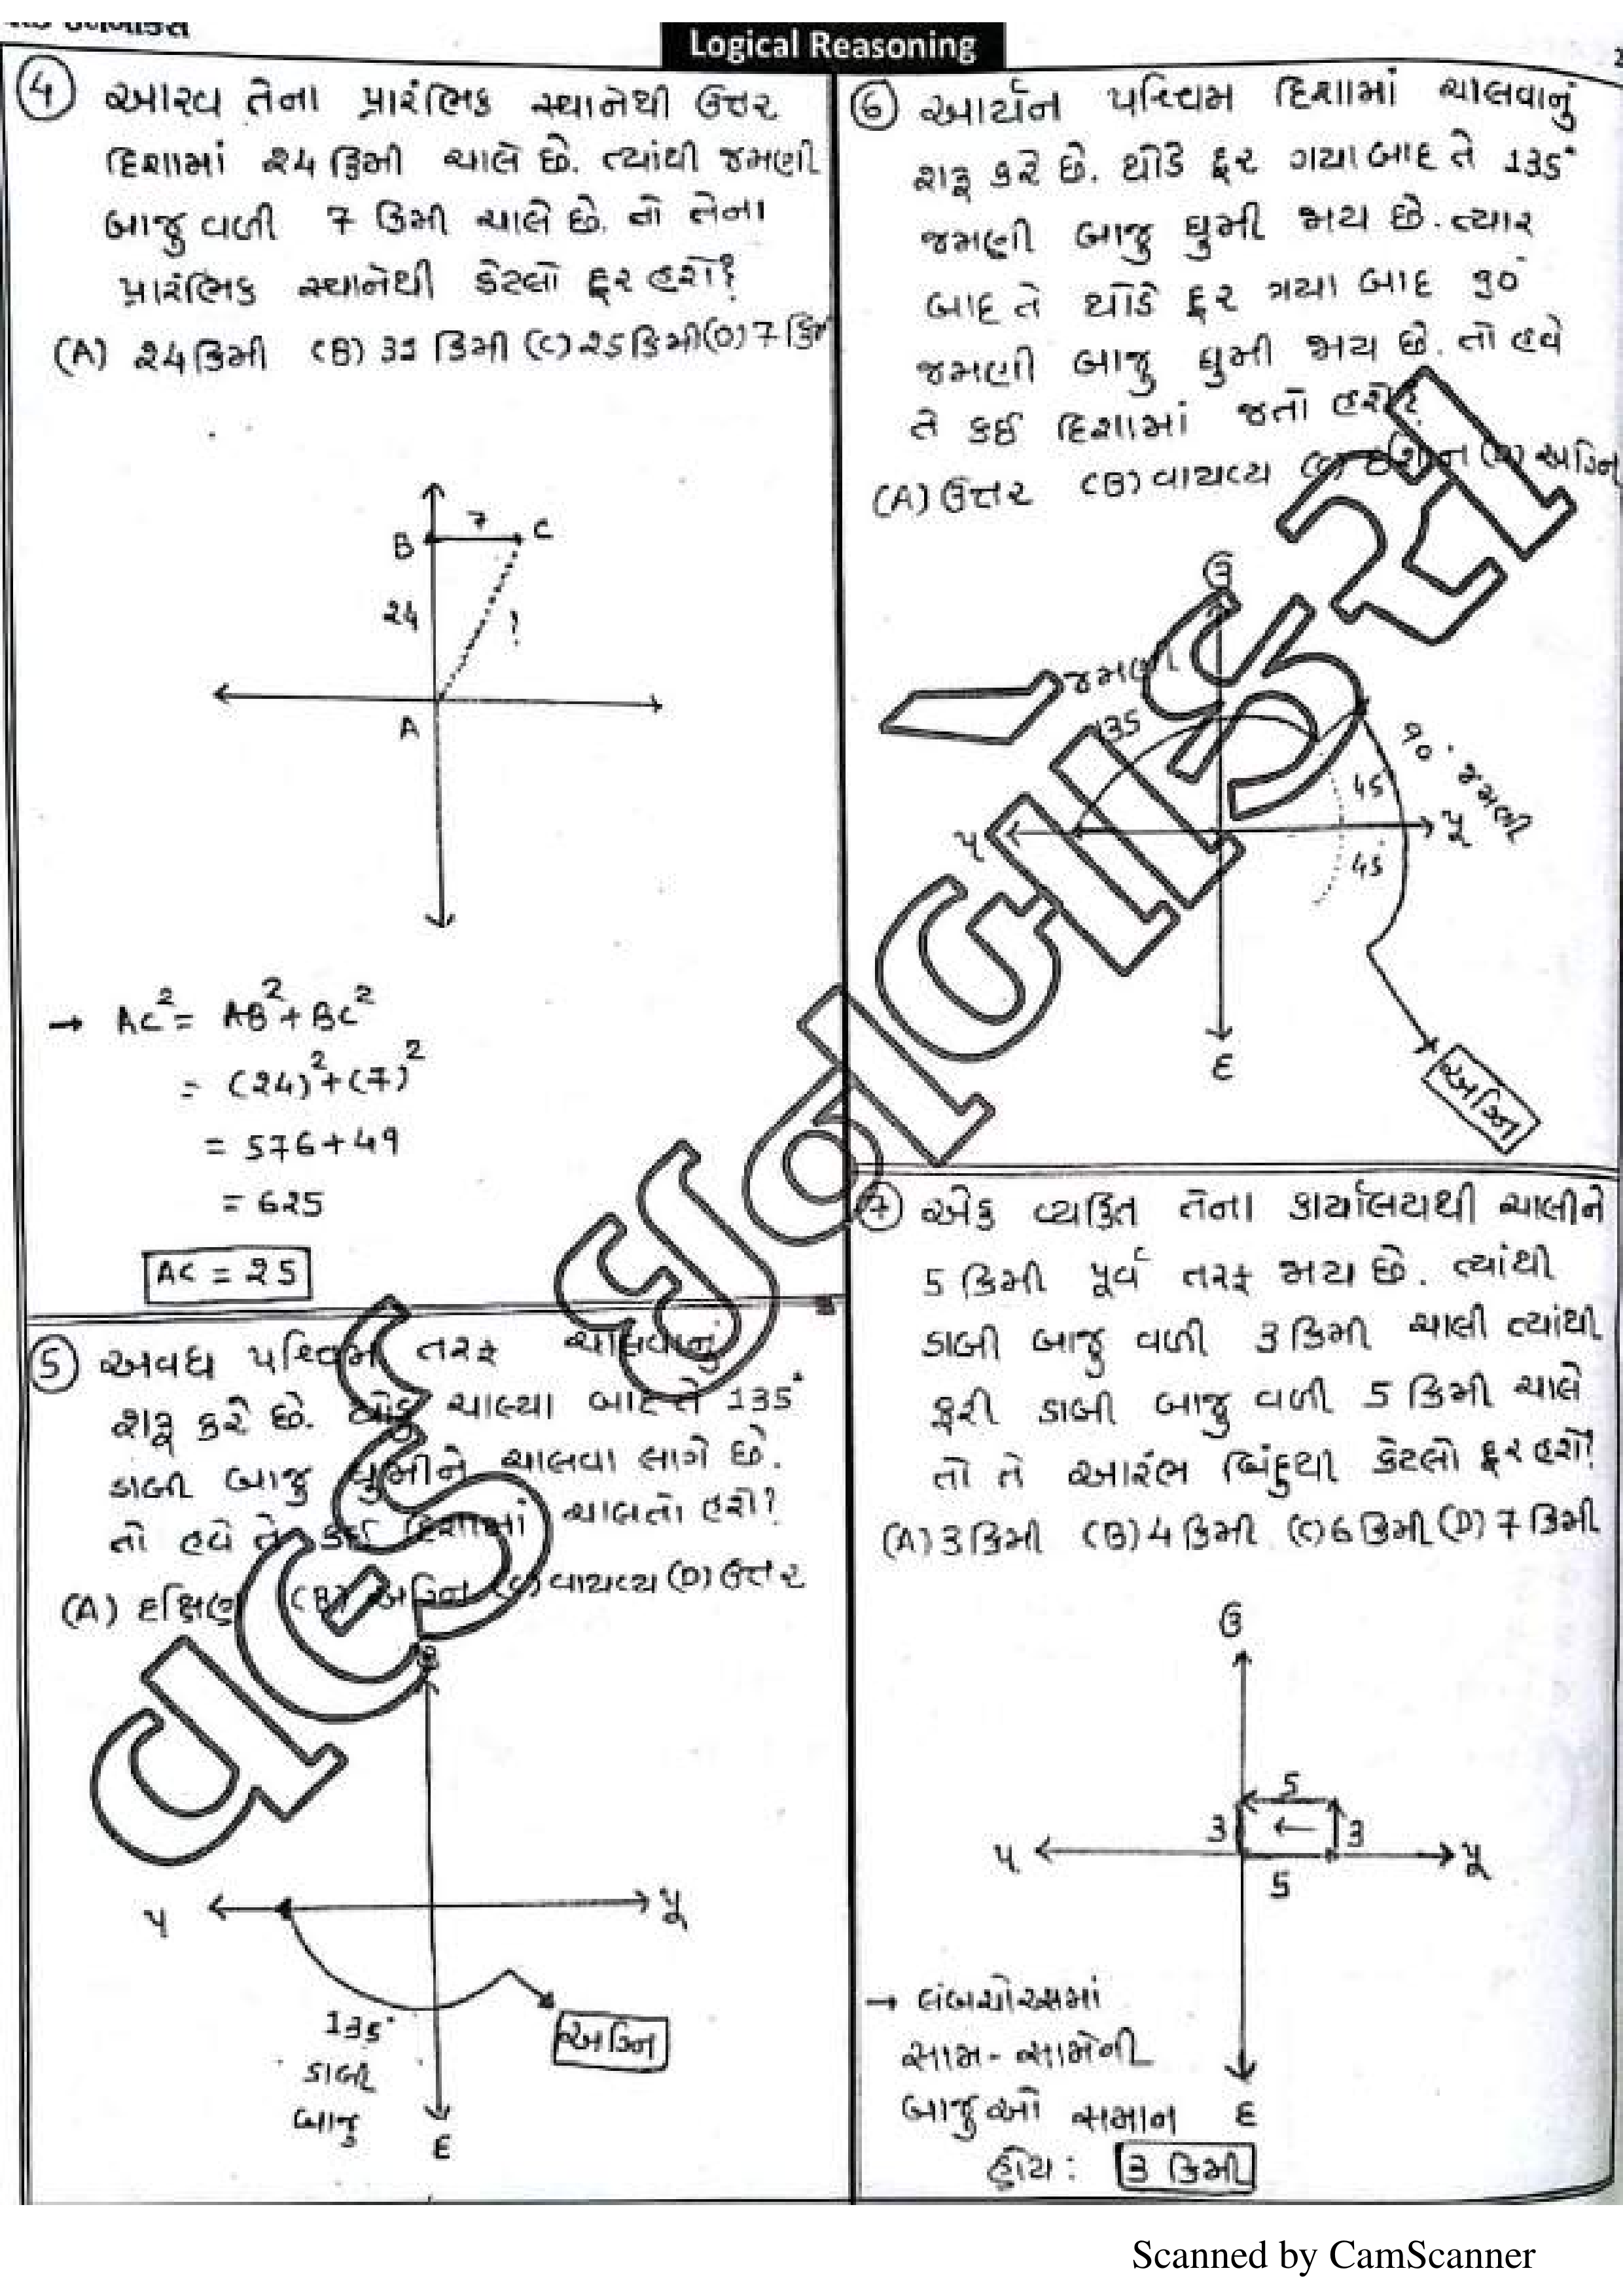 Logical Reasoning
④ આરવ તેના પ્રારંભિક સ્થાનેથી ઉત્તર
દિશામાં 24 કિમી ચાલે છે. ત્યાંથી જમણી
બાજુ વળી 7 કિમી ચાલે છે. તો તેના
પ્રારંભિક સ્થાનેથી કેટલો દૂર હશે?
(A) 24 કિમી (B) 31 કિમી (C) 25 કિમી (D) 7 કિમી
B 7 C
24 ?
A
→ AC² = AB² + BC²
= (24)² + (7)²
= 576 + 49
= 625
AC = 25
⑤ અવધ પશ્ચિમ તરફ ચાલવાનું
શરૂ કરે છે. થોડું ચાલ્યા બાદ તે 135°
ડાબી બાજુ ઘુમીને ચાલવા લાગે છે.
તો હવે તે કઈ દિશામાં ચાલતો હશે?
(A) દક્ષિણ (B) અગ્નિ (C) વાયવ્ય (D) ઉત્તર
ઉ
પ પૂ
135°
ડાબી
બાજુ
અગ્નિ
દ
⑥ આર્યન પશ્ચિમ દિશામાં ચાલવાનું
શરૂ કરે છે. થોડે દૂર ગયા બાદ તે 135°
જમણી બાજુ ઘુમી જાય છે. ત્યાર
બાદ તે થોડે દૂર ગયા બાદ 90°
જમણી બાજુ ઘુમી જાય છે. તો હવે
તે કઈ દિશામાં જતો હશે?
(A) ઉત્તર (B) વાયવ્ય (C) ઈશાન (D) અગ્નિ
ઉ
જમણી
135
90° જમણી
45°
પ પૂ
45°
દ
અગ્નિ
⑦ એક વ્યક્તિ તેના કાર્યાલયથી ચાલીને
5 કિમી પૂર્વ તરફ જાય છે. ત્યાંથી
ડાબી બાજુ વળી 3 કિમી ચાલી ત્યાંથી
ફરી ડાબી બાજુ વળી 5 કિમી ચાલે
તો તે આરંભ બિંદુથી કેટલો દૂર હશે?
(A) 3 કિમી (B) 4 કિમી (C) 6 કિમી (D) 7 કિમી
ઉ
5
3 ← 3
પ પૂ
5
→ લંબચોરસમાં
સામ-સામેની
બાજુઓ સમાન
દ
હોય : 3 કિમી
Scanned by CamScanner